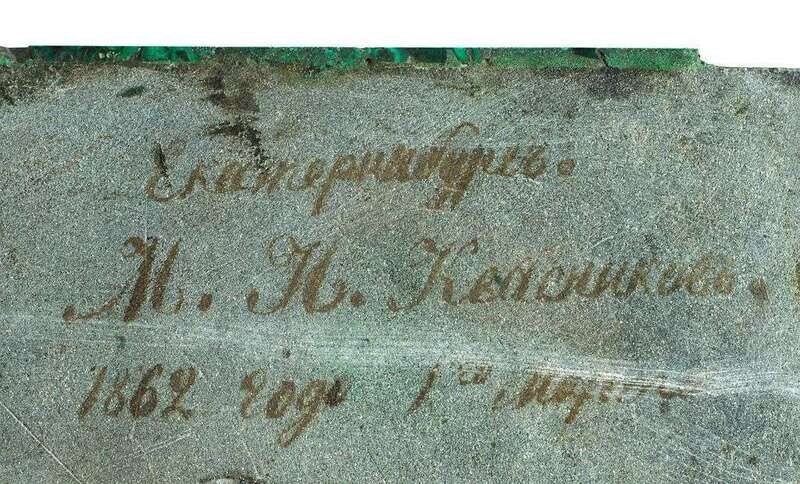 Екатеринбургъ.
М. Н. Колесниковъ.
1862 года 1го Марта